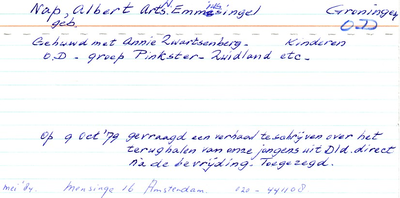 Nap, Albert Arts. N. Emmasingel Groningen
geb. O.D
Gehuwd met Annie Zwartsenberg - Kinderen
O.D - groep Pinkster - Zuidland etc -
Op 9 Oct '79 gevraagd een verhaal te schrijven over het
terughalen van onze jongens uit Dld. direct
na de bevrijding. Toegezegd.
mei '84. Mensinge 16 Amsterdam. 020 - 441108